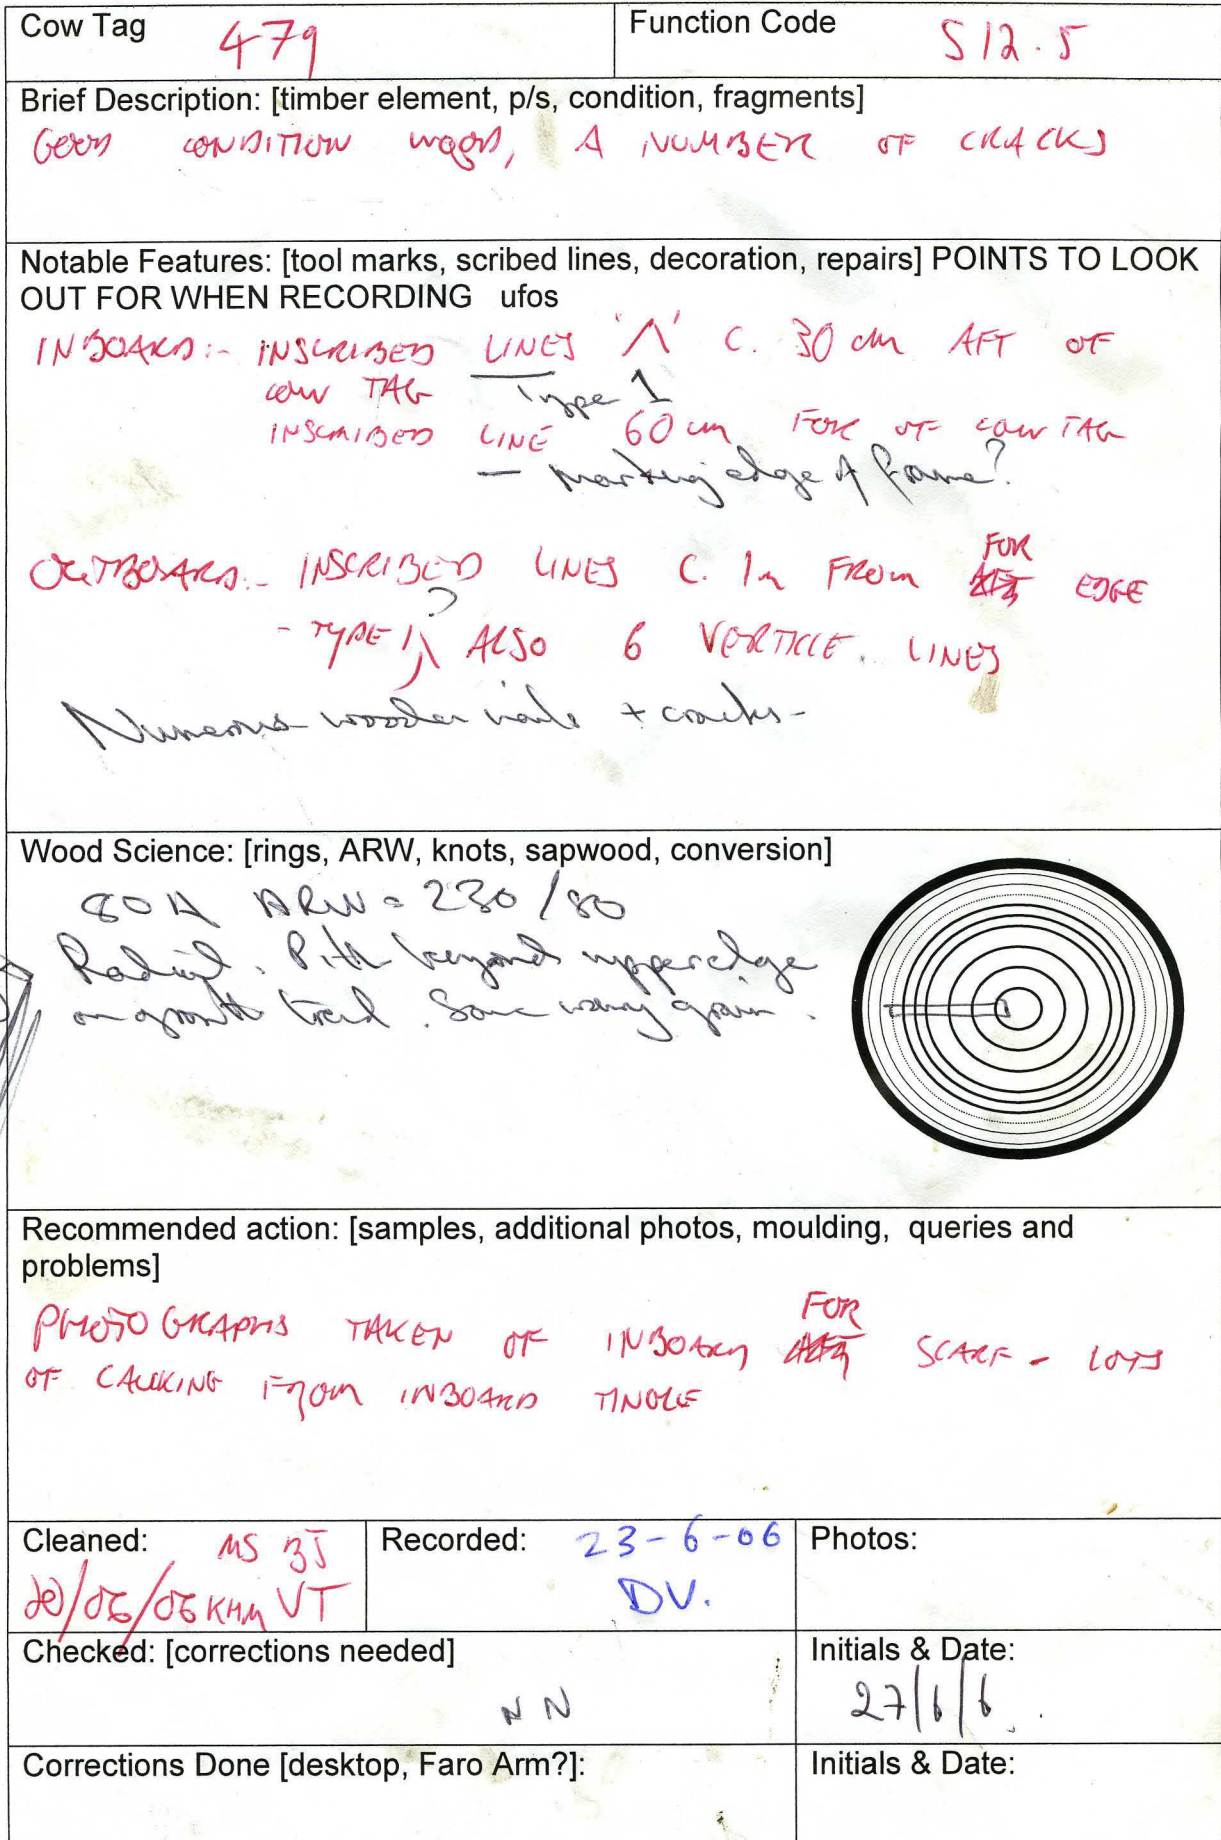 Cow Tag 479 Function Code S12.5
Brief Description: [timber element, p/s, condition, fragments]
GOOD CONDITION WOOD, A NUMBER OF CRACKS
Notable Features: [tool marks, scribed lines, decoration, repairs] POINTS TO LOOK
OUT FOR WHEN RECORDING ufos
INBOARD:- INSCRIBED LINES 'Λ' C. 30 cm AFT OF
COW TAG Type 1
INSCRIBED LINE 60 cm FOR OF COW TAG
— marking edge of frame?
OUTBOARD:- INSCRIBED LINES C. 1m FROM FOR EDGE
- TYPE 1? ALSO 6 VERTICLE LINES
Numerous wooden nails + cracks-
Wood Science: [rings, ARW, knots, sapwood, conversion]
80 ARW = 230/80
Radial. Pith beyond upper edge
on growth trend. Some wavy grain.
Recommended action: [samples, additional photos, moulding, queries and
problems]
PHOTOGRAPHS TAKEN OF INBOARD FOR SCARF - LOTS
OF CAULKING FROM INBOARD TINGLE
Cleaned: MS BJ
20/06/06 KHM VT
Recorded: 23-6-06
DV.
Photos:
Checked: [corrections needed]
NN
Initials & Date:
27/6/6.
Corrections Done [desktop, Faro Arm?]:
Initials & Date: